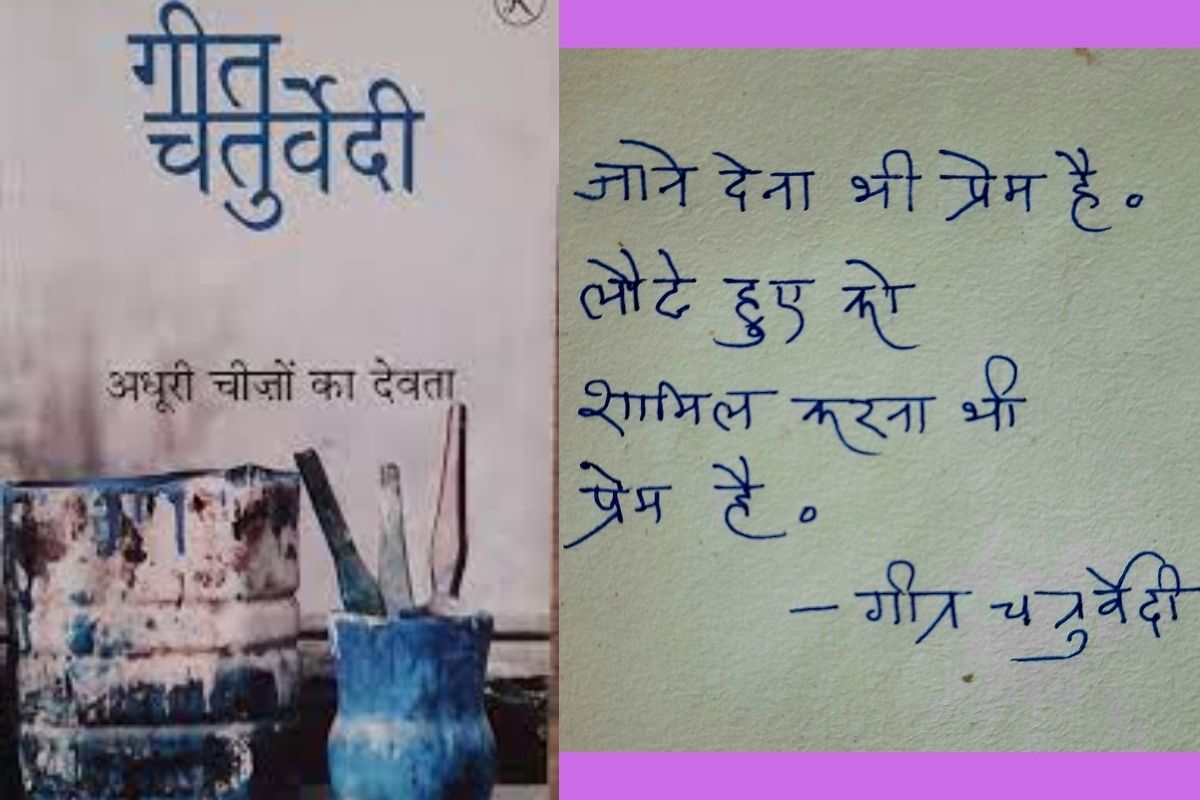 गीत
चतुर्वेदी
अधूरी चीज़ों का देवता
जाने देना भी प्रेम है.
लौटे हुए को
शामिल करना भी
प्रेम है.
- गीत चतुर्वेदी